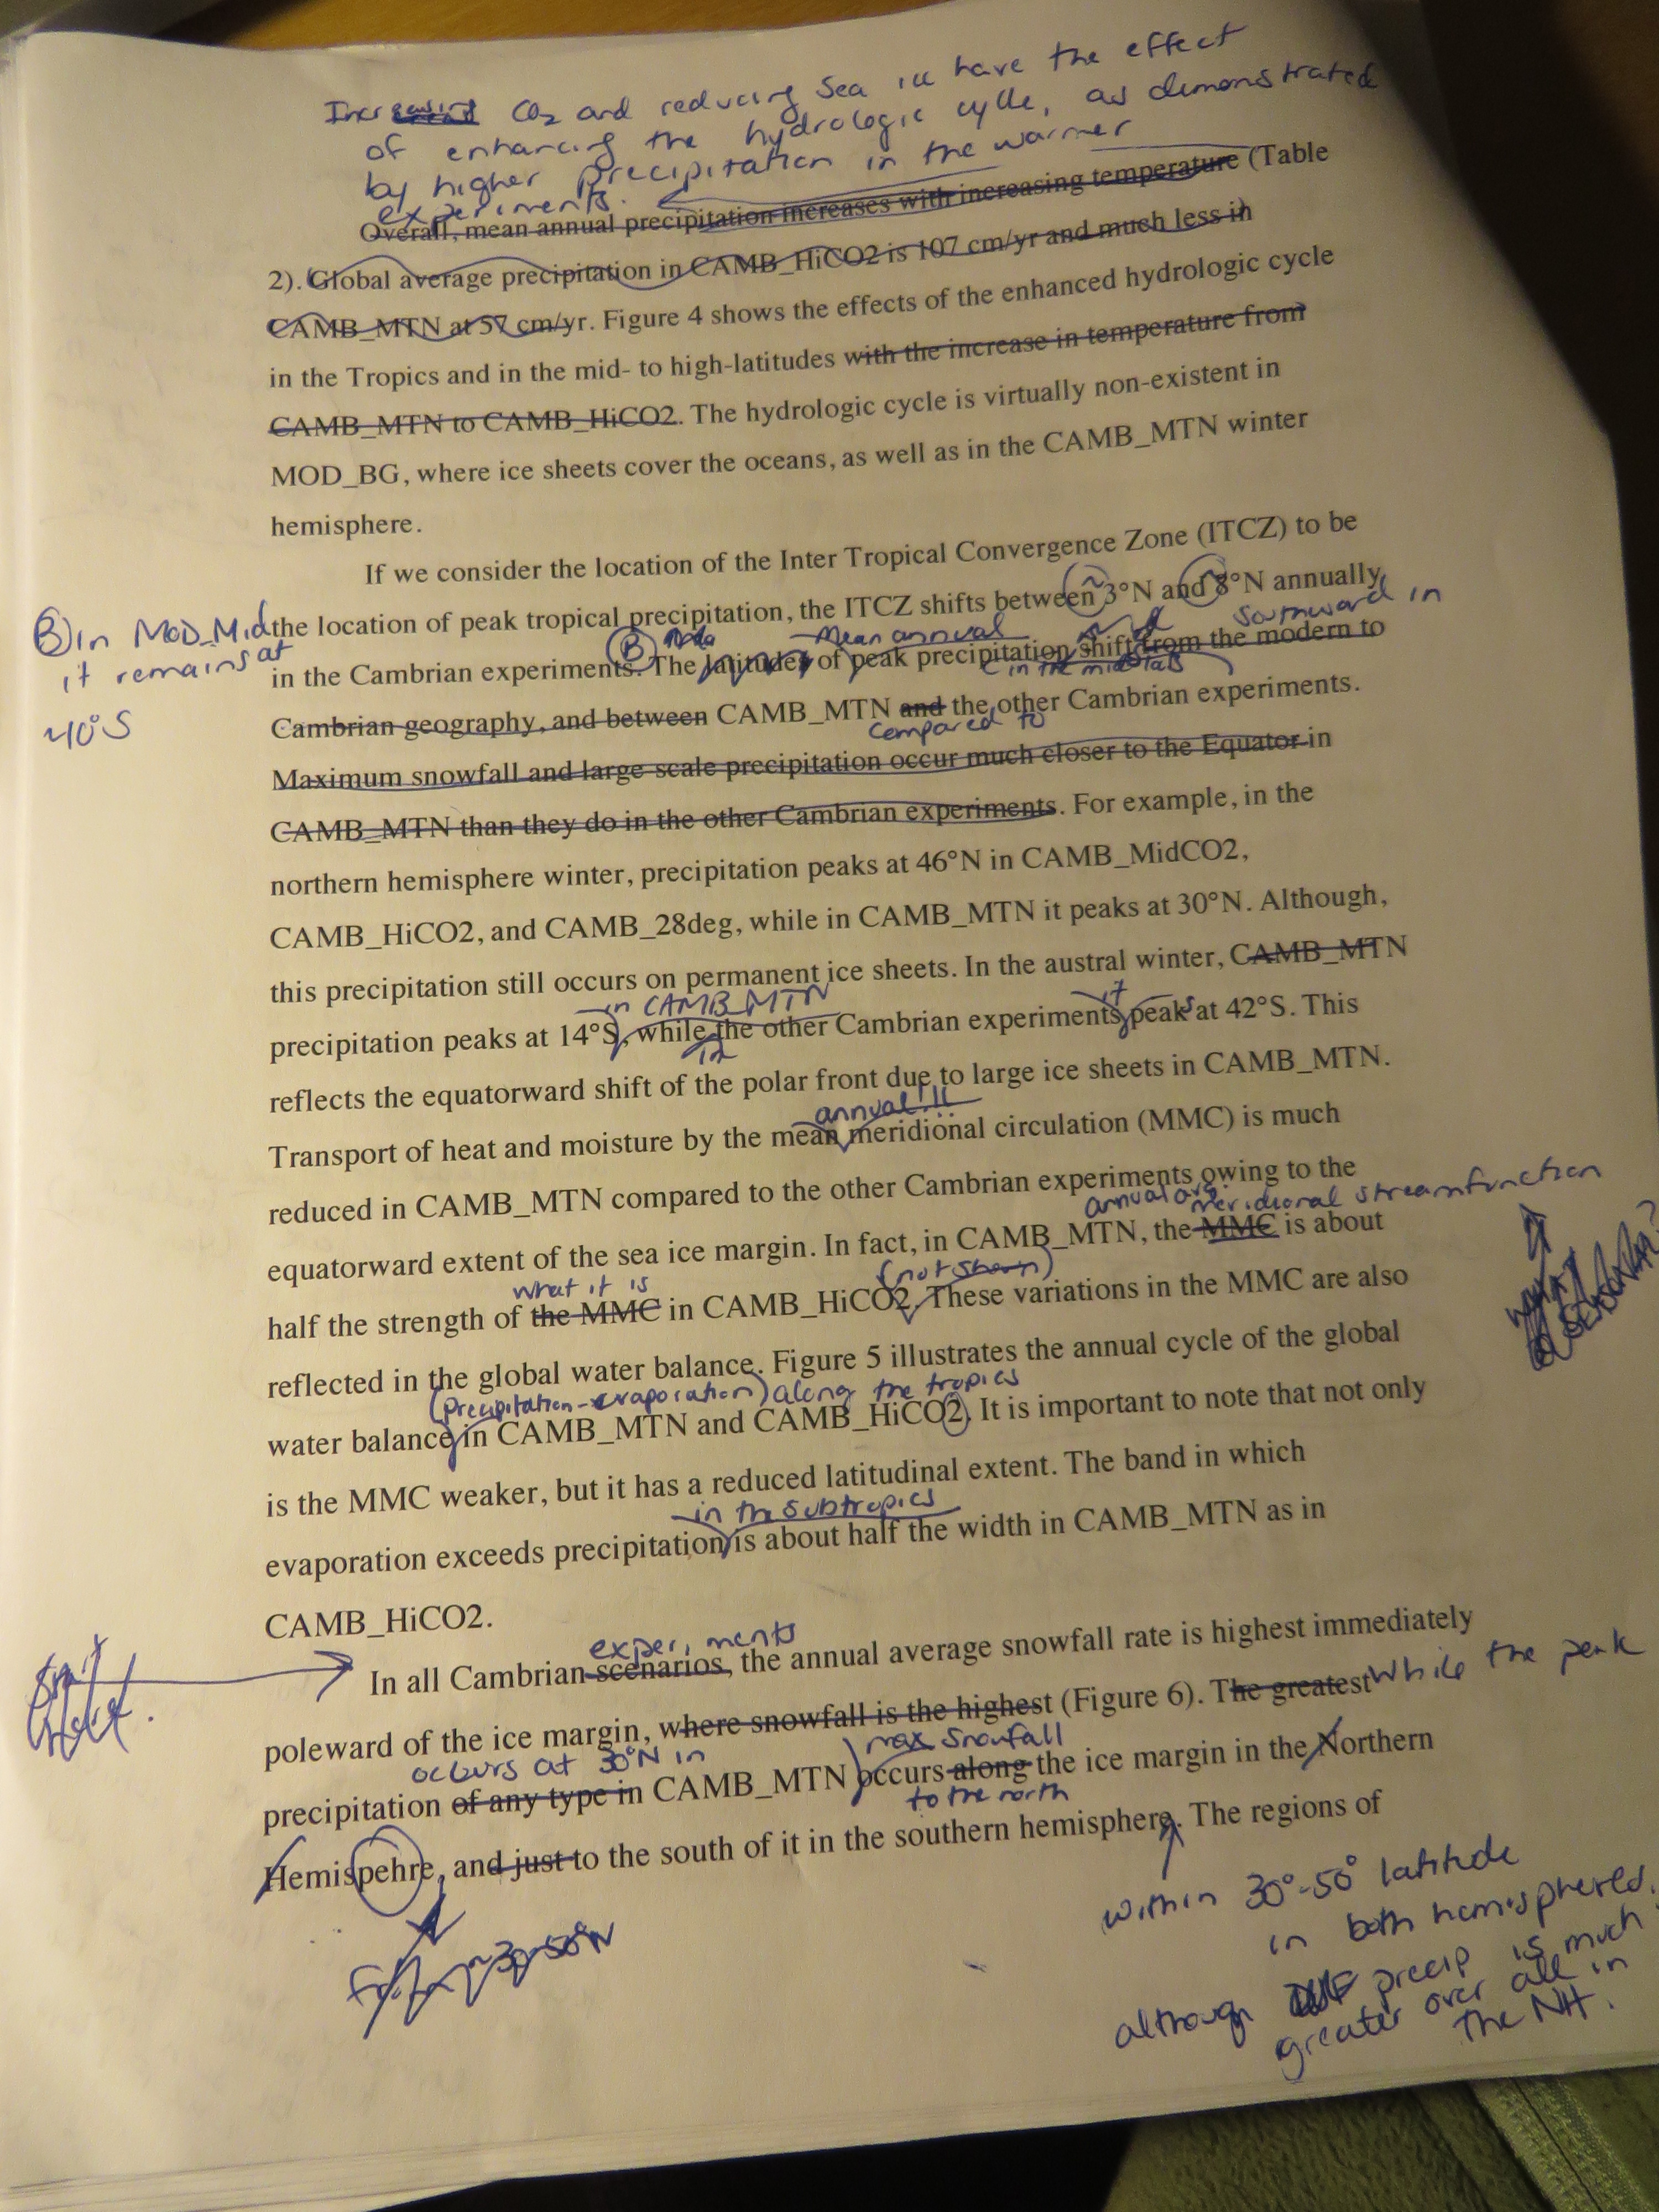 Increasing CO2 and reducing Sea ice have the effect
of enhancing the hydrologic cycle, as demonstrated
by higher precipitation in the warmer
experiments.
Overall, mean annual precipitation increases with increasing temperature (Table
2). Global average precipitation in CAMB_HiCO2 is 107 cm/yr and much less in
CAMB_MTN at 57 cm/yr. Figure 4 shows the effects of the enhanced hydrologic cycle
in the Tropics and in the mid- to high-latitudes with the increase in temperature from
CAMB_MTN to CAMB_HiCO2. The hydrologic cycle is virtually non-existent in
MOD_BG, where ice sheets cover the oceans, as well as in the CAMB_MTN winter
hemisphere.
If we consider the location of the Inter Tropical Convergence Zone (ITCZ) to be
the location of peak tropical precipitation, the ITCZ shifts between ~3°N and ~8°N annually
B) in MOD_Mid
it remains at
~10°S
B Mean annual southward in
in the Cambrian experiments. The latitudes of peak precipitation shift from the modern to
in the mid lats
Cambrian geography, and between CAMB_MTN and the other Cambrian experiments.
compared to
Maximum snowfall and large scale precipitation occur much closer to the Equator in
CAMB_MTN than they do in the other Cambrian experiments. For example, in the
northern hemisphere winter, precipitation peaks at 46°N in CAMB_MidCO2,
CAMB_HiCO2, and CAMB_28deg, while in CAMB_MTN it peaks at 30°N. Although,
this precipitation still occurs on permanent ice sheets. In the austral winter, CAMB_MTN
in CAMB_MTN it
precipitation peaks at 14°S, while the other Cambrian experiments peaks at 42°S. This
in
reflects the equatorward shift of the polar front due to large ice sheets in CAMB_MTN.
annual!!!
Transport of heat and moisture by the mean meridional circulation (MMC) is much
reduced in CAMB_MTN compared to the other Cambrian experiments owing to the
annual avg. meridional streamfunction
equatorward extent of the sea ice margin. In fact, in CAMB_MTN, the MMC is about
what it is (not shown)
half the strength of the MMC in CAMB_HiCO2. These variations in the MMC are also
reflected in the global water balance. Figure 5 illustrates the annual cycle of the global
(precipitation-evaporation) along the tropics
water balance in CAMB_MTN and CAMB_HiCO2. It is important to note that not only
is the MMC weaker, but it has a reduced latitudinal extent. The band in which
in the subtropics
evaporation exceeds precipitation is about half the width in CAMB_MTN as in
CAMB_HiCO2.
experiments
In all Cambrian scenarios, the annual average snowfall rate is highest immediately
poleward of the ice margin, where snowfall is the highest (Figure 6). The greatest while the peak
occurs at 30°N in max snowfall
precipitation of any type in CAMB_MTN occurs along the ice margin in the Northern
to the north
Hemispehre, and just to the south of it in the southern hemisphere. The regions of
~30-50°N
within 30°-50° latitude
in both hemispheres,
although precip is much
greater over all in
the NH.